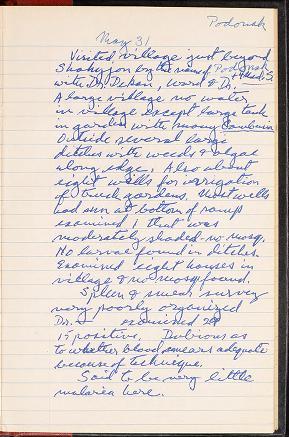 Podonak
May 31
Visited village just beyond
by the name of Podonak
with Dr. Dekan, Ward & Dr.
A large village no water
in village except large tank
in garden with many
Outside several large
ditches with weeds & algae
along edge. Also about
eight wells for irrigation
of truck gardens. Most wells
had sun at bottom of ramp
examined 1 that was
moderately shaded - no mosq.
No larvae found in ditches.
Examined eight houses in
village & no mosq. found.
Spleen & smear survey
very poorly organized
Dr. examined
positive. Dubious as
to whether blood smears adequate
because of technique.
Said to be very little
malaria here.